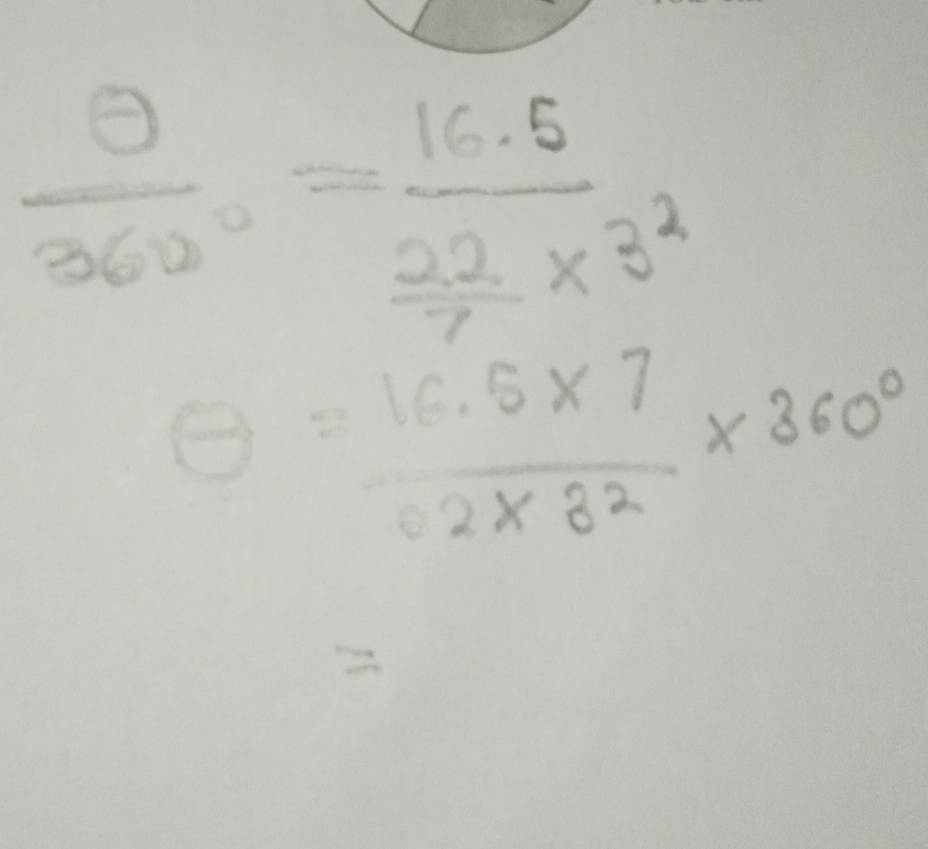 θ/360° = 16.5/(22/7 × 3²)
θ = (16.5 × 7)/(22 × 3²) × 360°
=